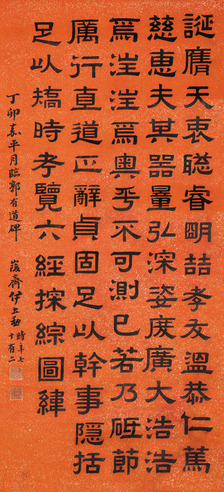 誕膺天衷聰睿明喆孝友溫恭仁篤
慈惠夫其器量弘深姿度廣大浩浩
焉汪汪焉奧乎不可測已若乃砥節
厲行直道正辭貞固足以幹事隱括
足以矯時考覽六經探綜圖緯
丁卯嘉平月臨郭有道碑 峻齋伊立勳時年七十有二